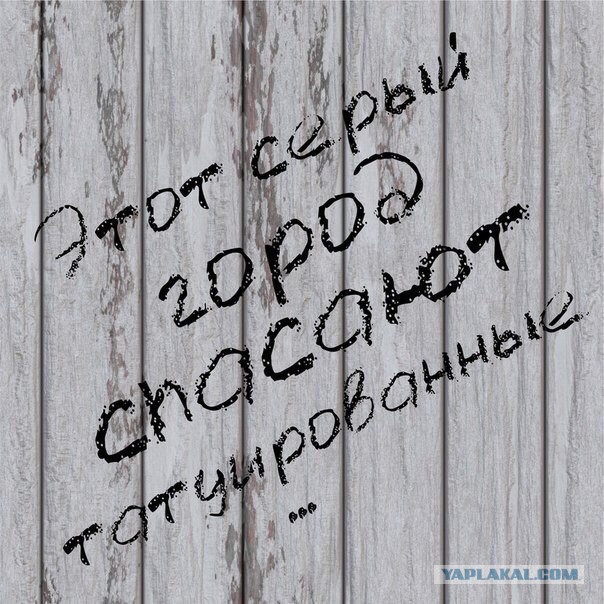 Этот серый
город
спасают
татуированные
...
YAPLAKAL.COM